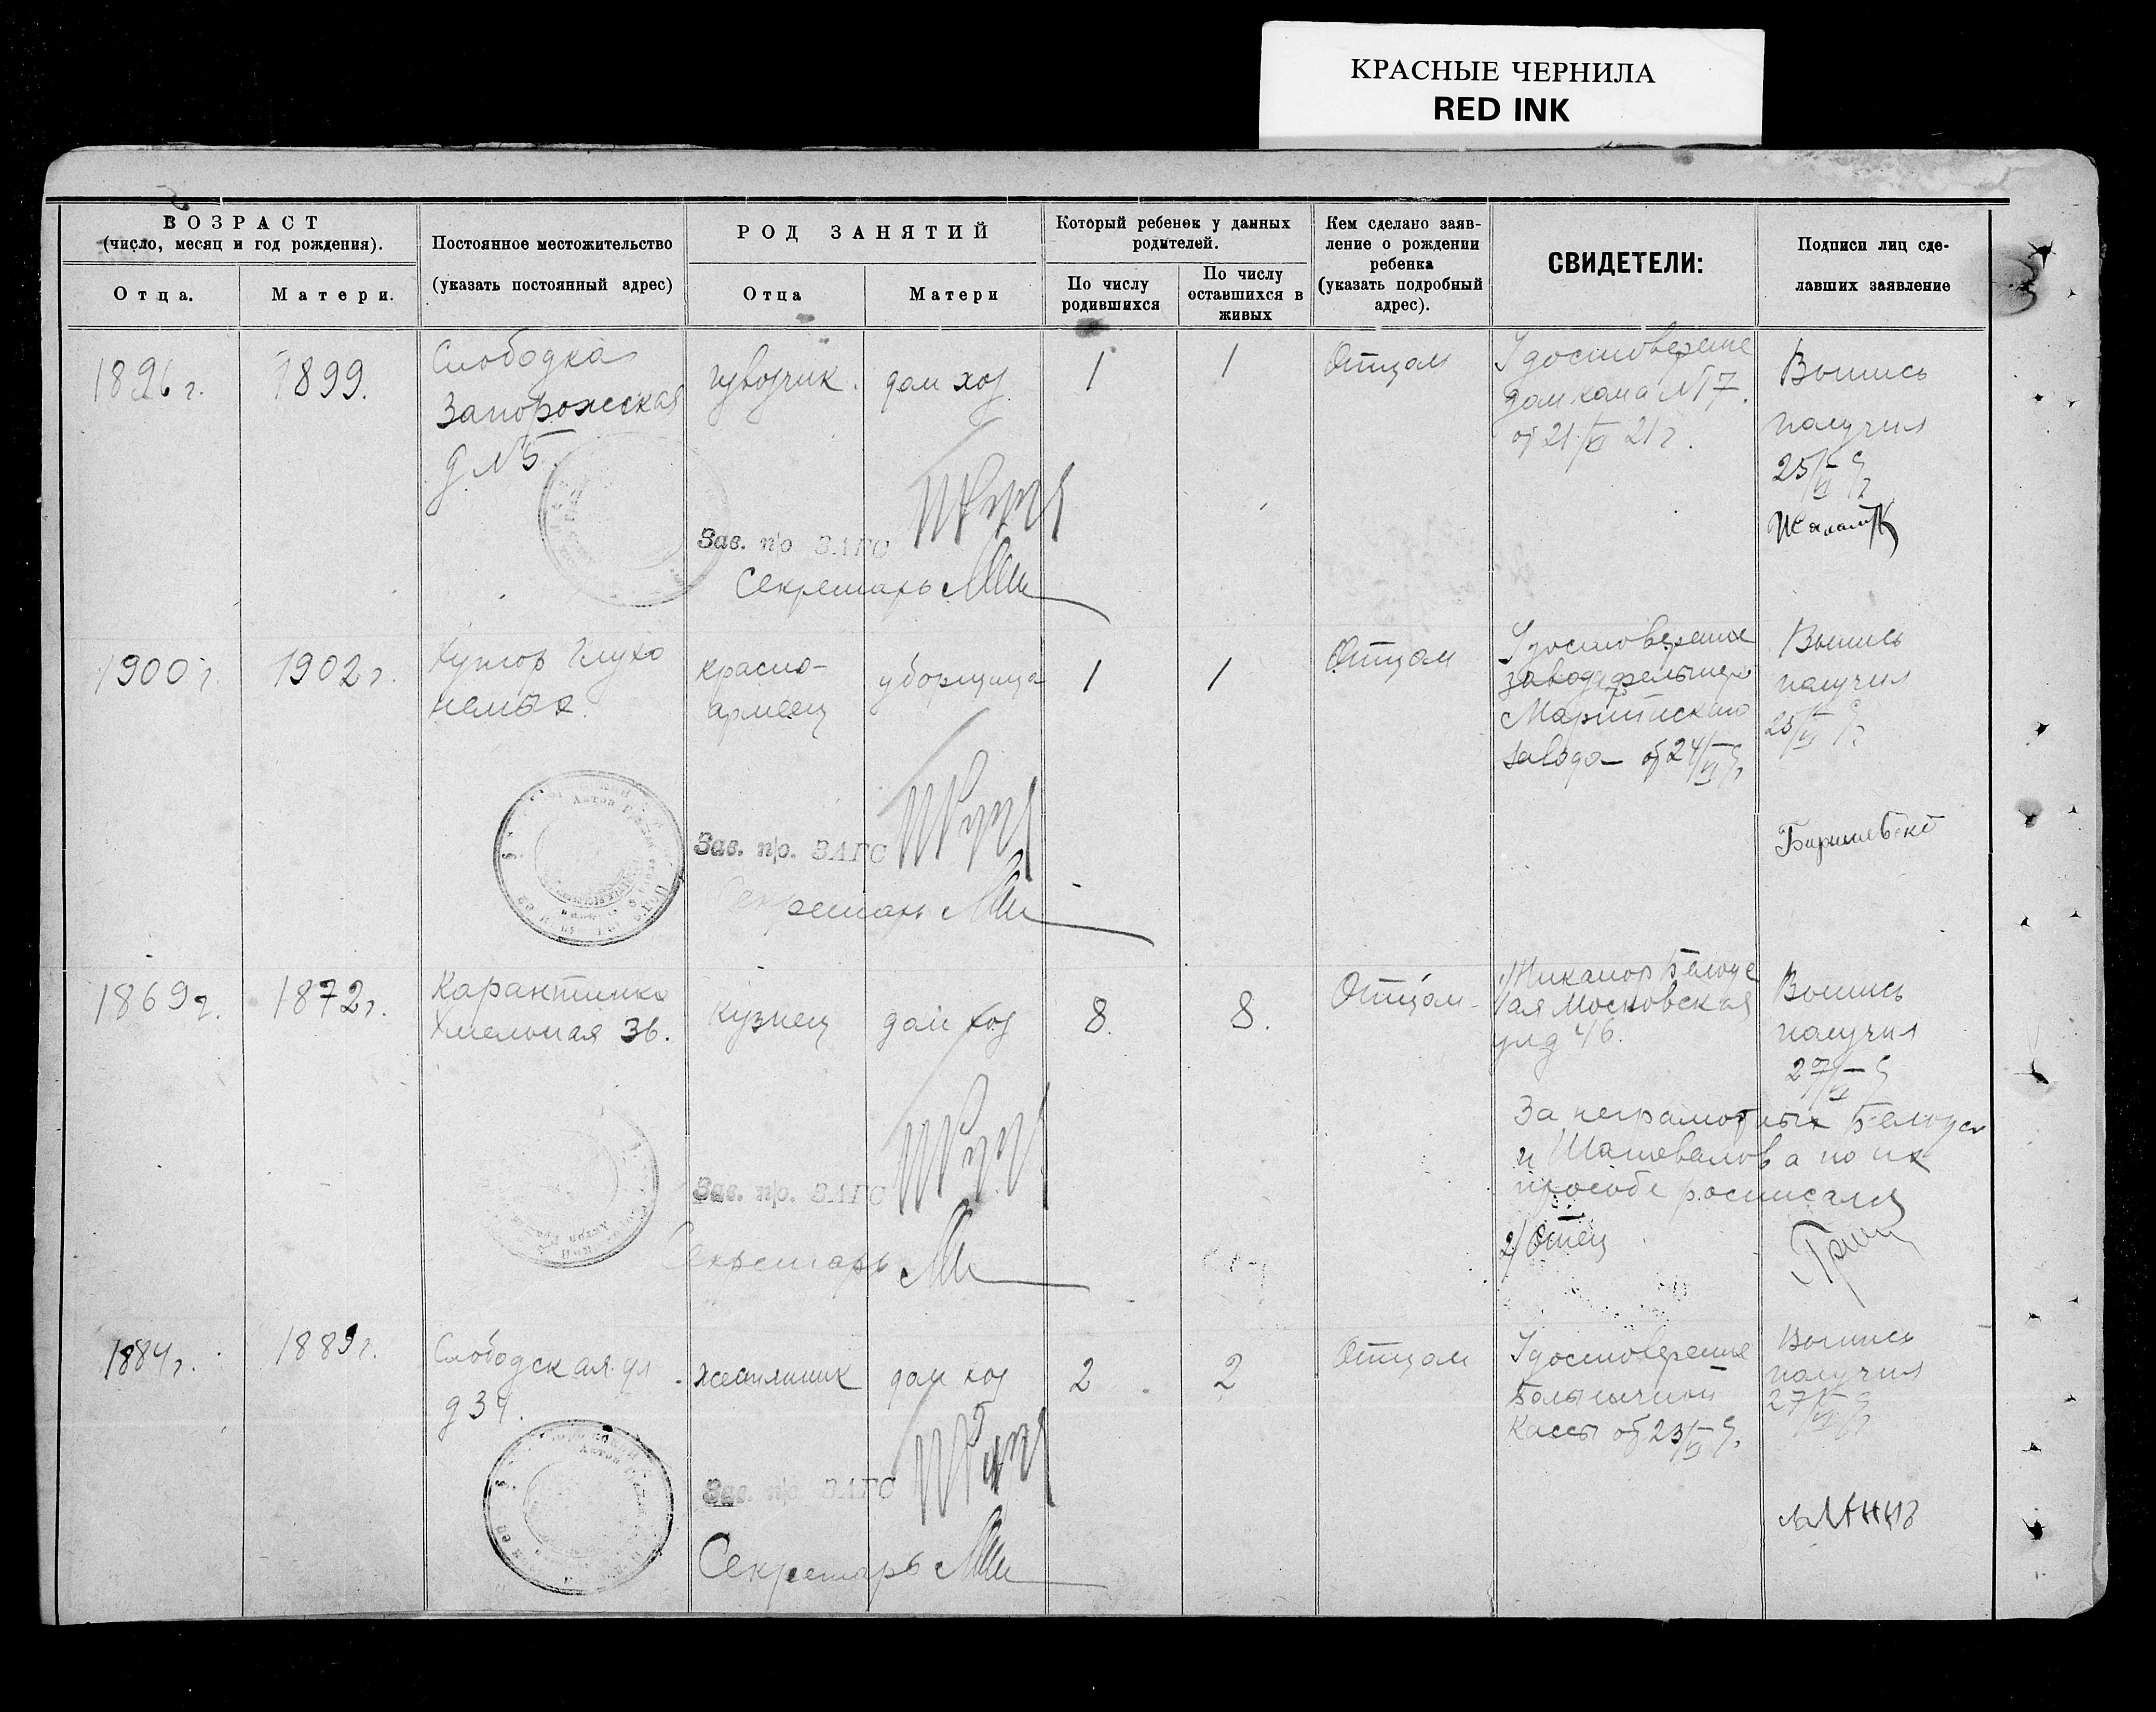 КРАСНЫЕ ЧЕРНИЛА
RED INK
ВОЗРАСТ
(число, месяц и год рождения).
Отца.
Матери.
Постоянное местожительство
(указать постоянный адрес)
РОД ЗАНЯТИЙ
Отца
Матери
Который ребенок у данных
родителей.
По числу
родившихся
По числу
оставшихся в
живых
Кем сделано заяв-
ление о рождении
ребенка
(указать подробный
адрес).
СВИДЕТЕЛИ:
Подписи лиц сде-
лавших заявление
1896 г.
1899.
Слободка
Запорожская
д №5.
дом хоз
1
1
Отцом
Удостоверение
домкома №17.
от 21/VI 21 г.
Выпись
получил
25/VI
Зав. п/о ЗАГС
Секретарь
1900 г.
1902 г.
Хутор Глухо
немых.
красно-
армеец
уборщица
1
1
Отцом
Удостоверение
Мариинского
завода от 24/VI
Выпись
получил
25/VI
Зав. п/о. ЗАГС
Секретарь
1869 г.
1872 г.
Карантинка
Хмельная 36.
кузнец
дом хоз
8.
8.
Отцом
1/Никанор
Московская
ул д 46.
Выпись
получил
27/VI
За неграмотных
и Шаповалова по их
просьбе росписался
2/Отец
Зав. п/о. ЗАГС
Секретарь
1884 г.
1889 г.
Слободская ул
д 34.
жестяник
дом хоз
2
2
Отцом
Удостоверение
Больничной
Кассы от 23/VI
Выпись
получил
27/VI
Зав. п/о ЗАГС
Секретарь